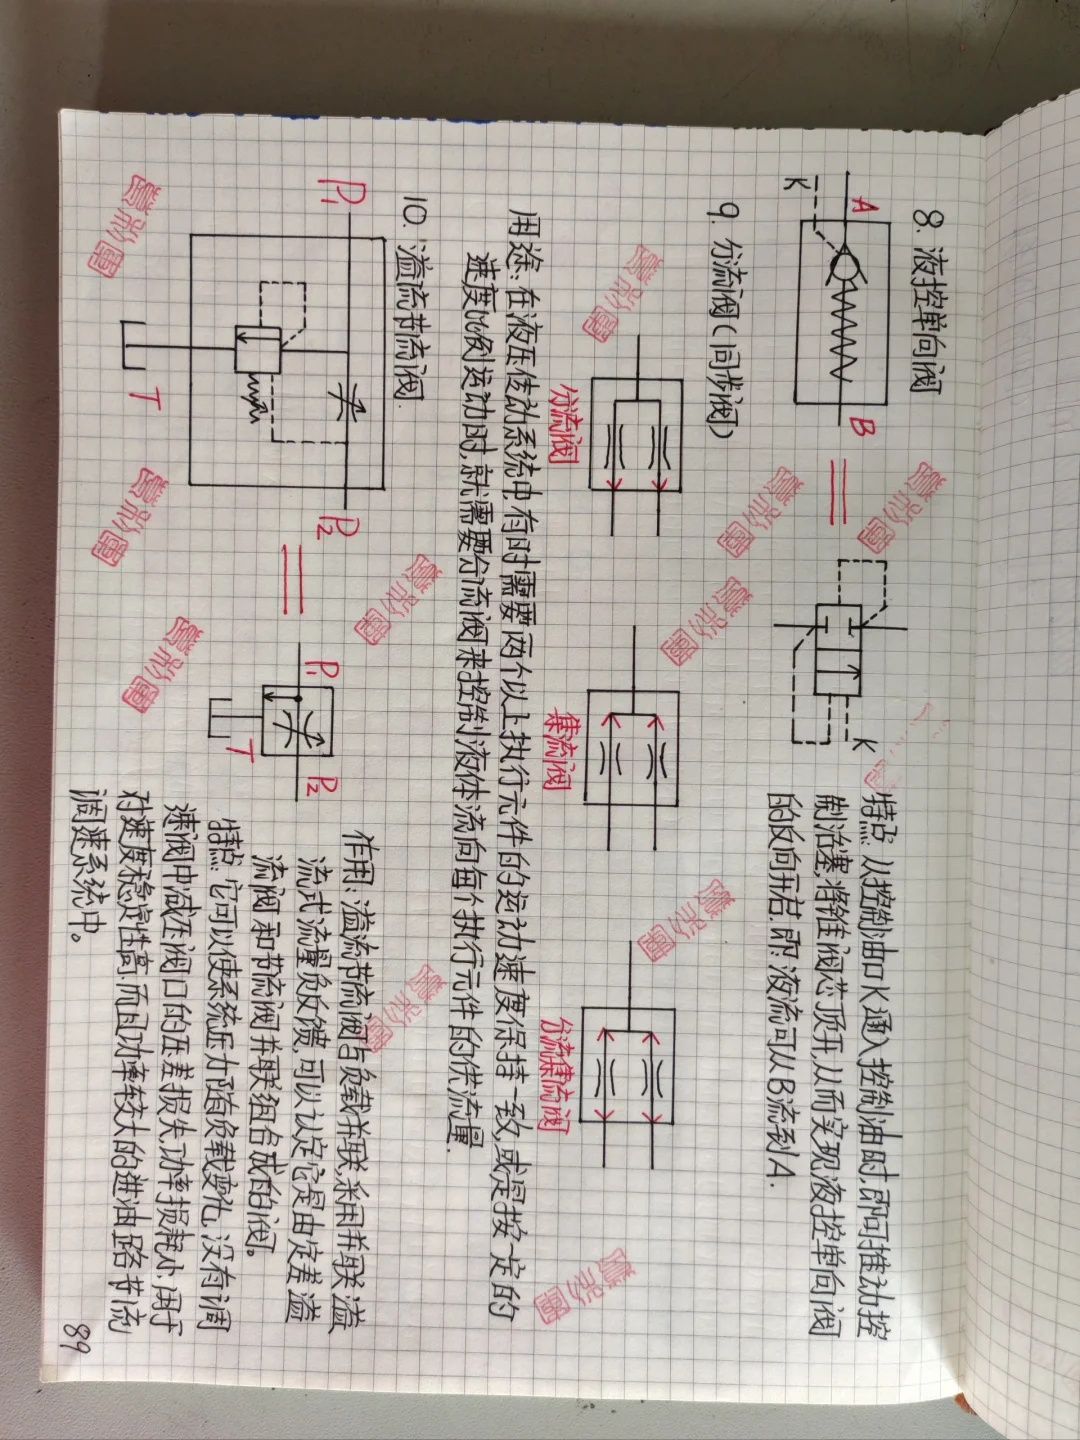 8. 液控单向阀
A
B
K
K
特点: 从控制油口K通入控制油时,即可推动控
制活塞,将锥阀芯顶开,从而实现液控单向阀
的反向开启.即:液流可以B流到A.
9. 分流阀(同步阀)
分流阀
集流阀
分流集流阀
用途:在液压传动系统中,有时需要两个以上执行元件的运动速度保持一致,或是按一定的
速度比例运动时,就需要分流阀来控制液体流向每个执行元件的供流量.
10. 溢流节流阀.
P₁
P₂
T
P₁
P₂
T
作用:溢流节流阀与负载并联,采用并联溢
流式流量负反馈,可以认定它是由定差溢
流阀和节流阀并联组合成的阀。
特点:它可以使系统压力随负载变化,没有调
速阀中减压阀口的压差损失,功率损耗小,用于
对速度稳定性高,而且功率较大的进油路节流
调速系统中。
89